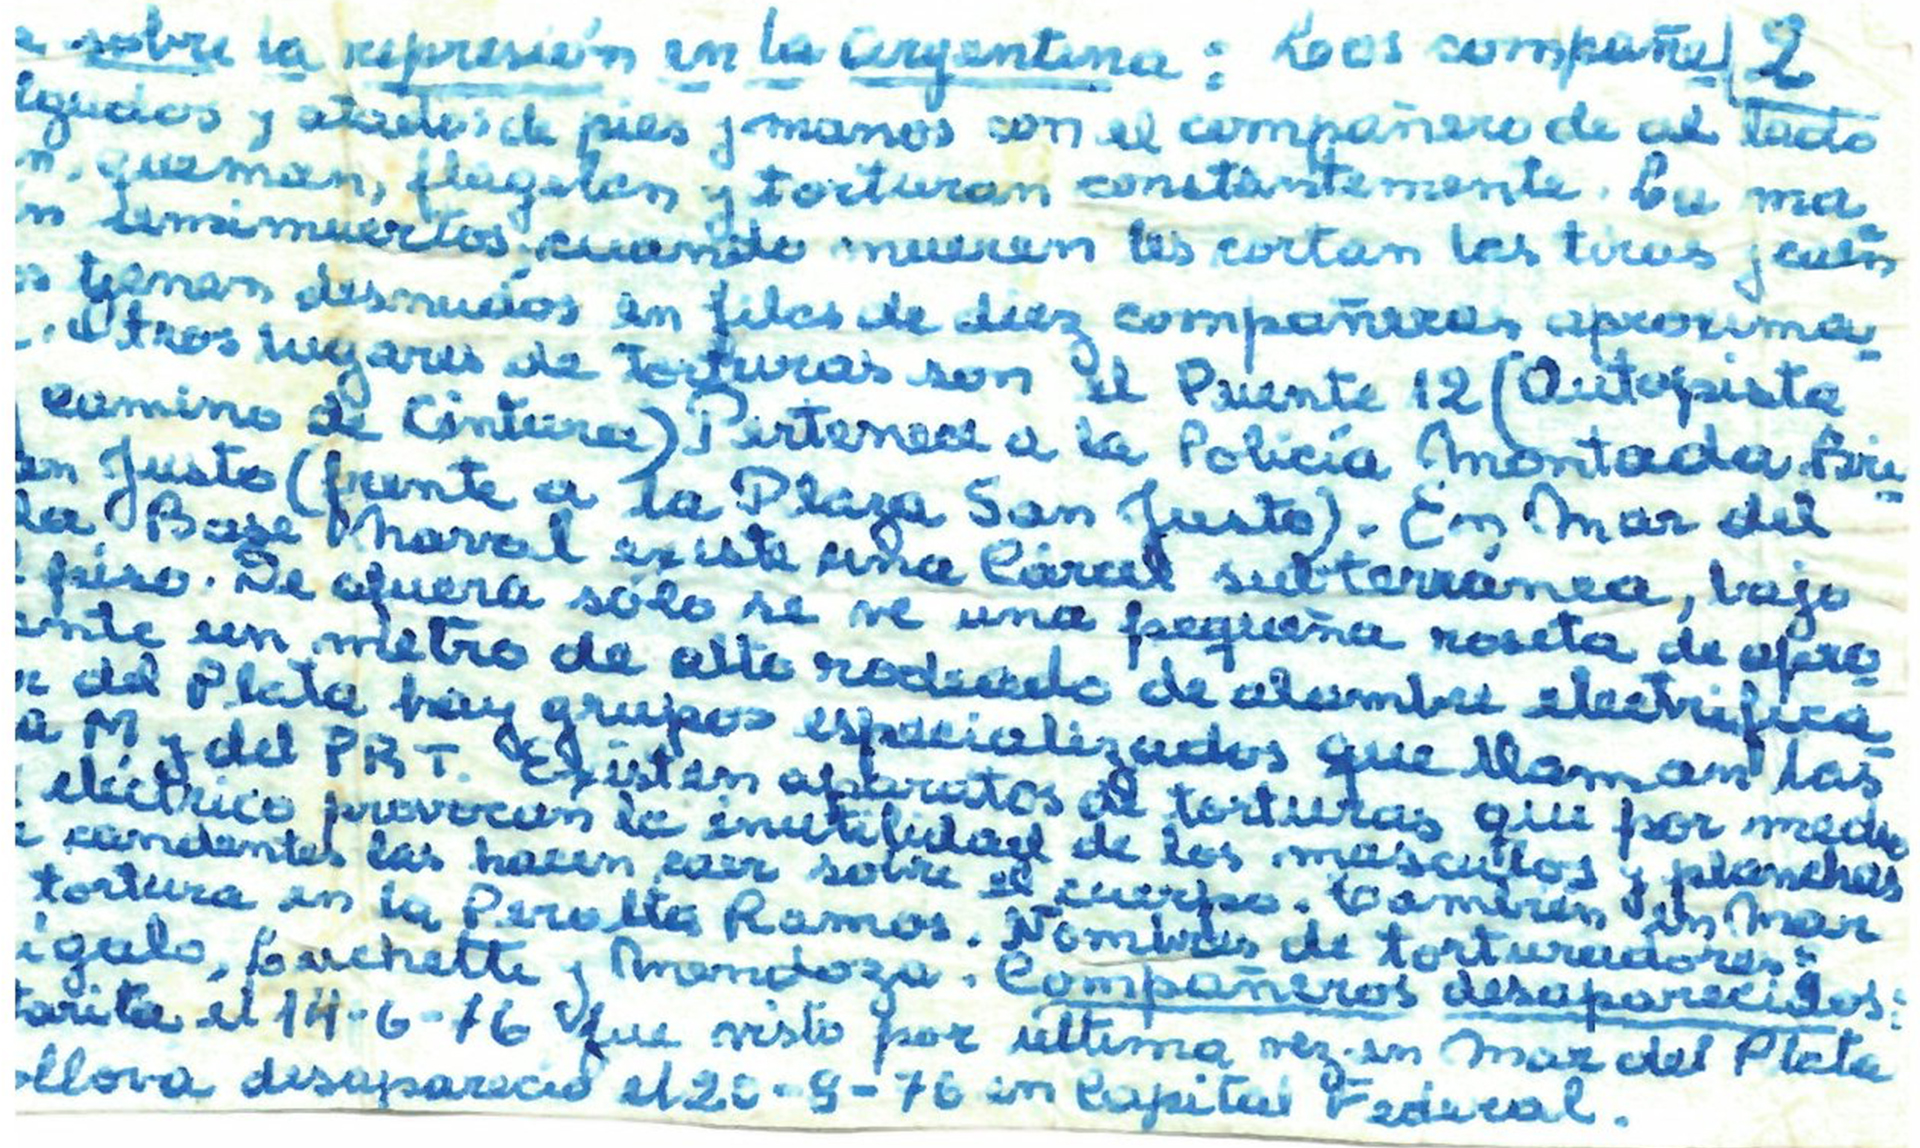 sobre la represión en la Argentina: Loos compañe 2
lgados y atados de pies y manos con el compañero de al lado
n, queman, flagelan y torturan constantemente. La ma
n semimuertos, cuando mueren les cortan las tiras y caen
s tienen desnudos en filas de diez compañeros aproxima-
. Otros lugares de torturas son el Puente 12 (Autopista
camino de Cintura) Pertenece a la Policía Montada. Bri-
an Justo (frente a la Plaza San Justo). En Mar del
la Base Naval existe una Cárcel subterránea, bajo
l piso. De afuera sólo se ve una pequeña roseta de apro
ante un metro de alto rodeado de alambre electrifica-
r del Plata hay grupos especializados que llaman las
a M y del PRT. Existen aparatos de torturas que por medio
eléctrico provocan la inutilidad de los musculos y planchas
candentes las hacen caer sobre el cuerpo. Tambien en Mar
tortura en la Peralta Ramos. Nombres de torturadores:
ígalo, Luchette y Mendoza. Compañeros desaparecidos:
tarita el 14-6-76 fue visto por última vez en Mar del Plata
ollova desapareció el 20-9-76 en Capital Federal.